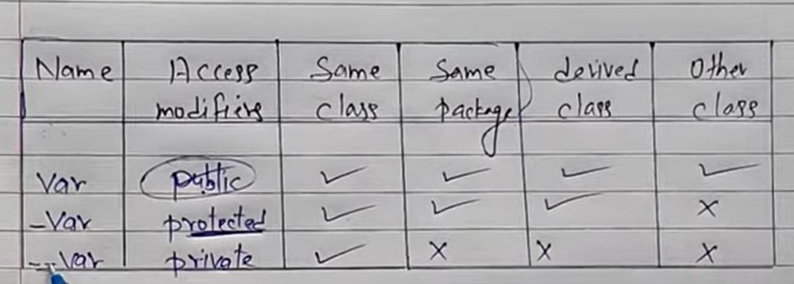 Name Access modifiers Same class Same package derived class Other class
Var public ✓ ✓ ✓ ✓
_Var protected ✓ ✓ ✓ ×
__Var private ✓ × × ×